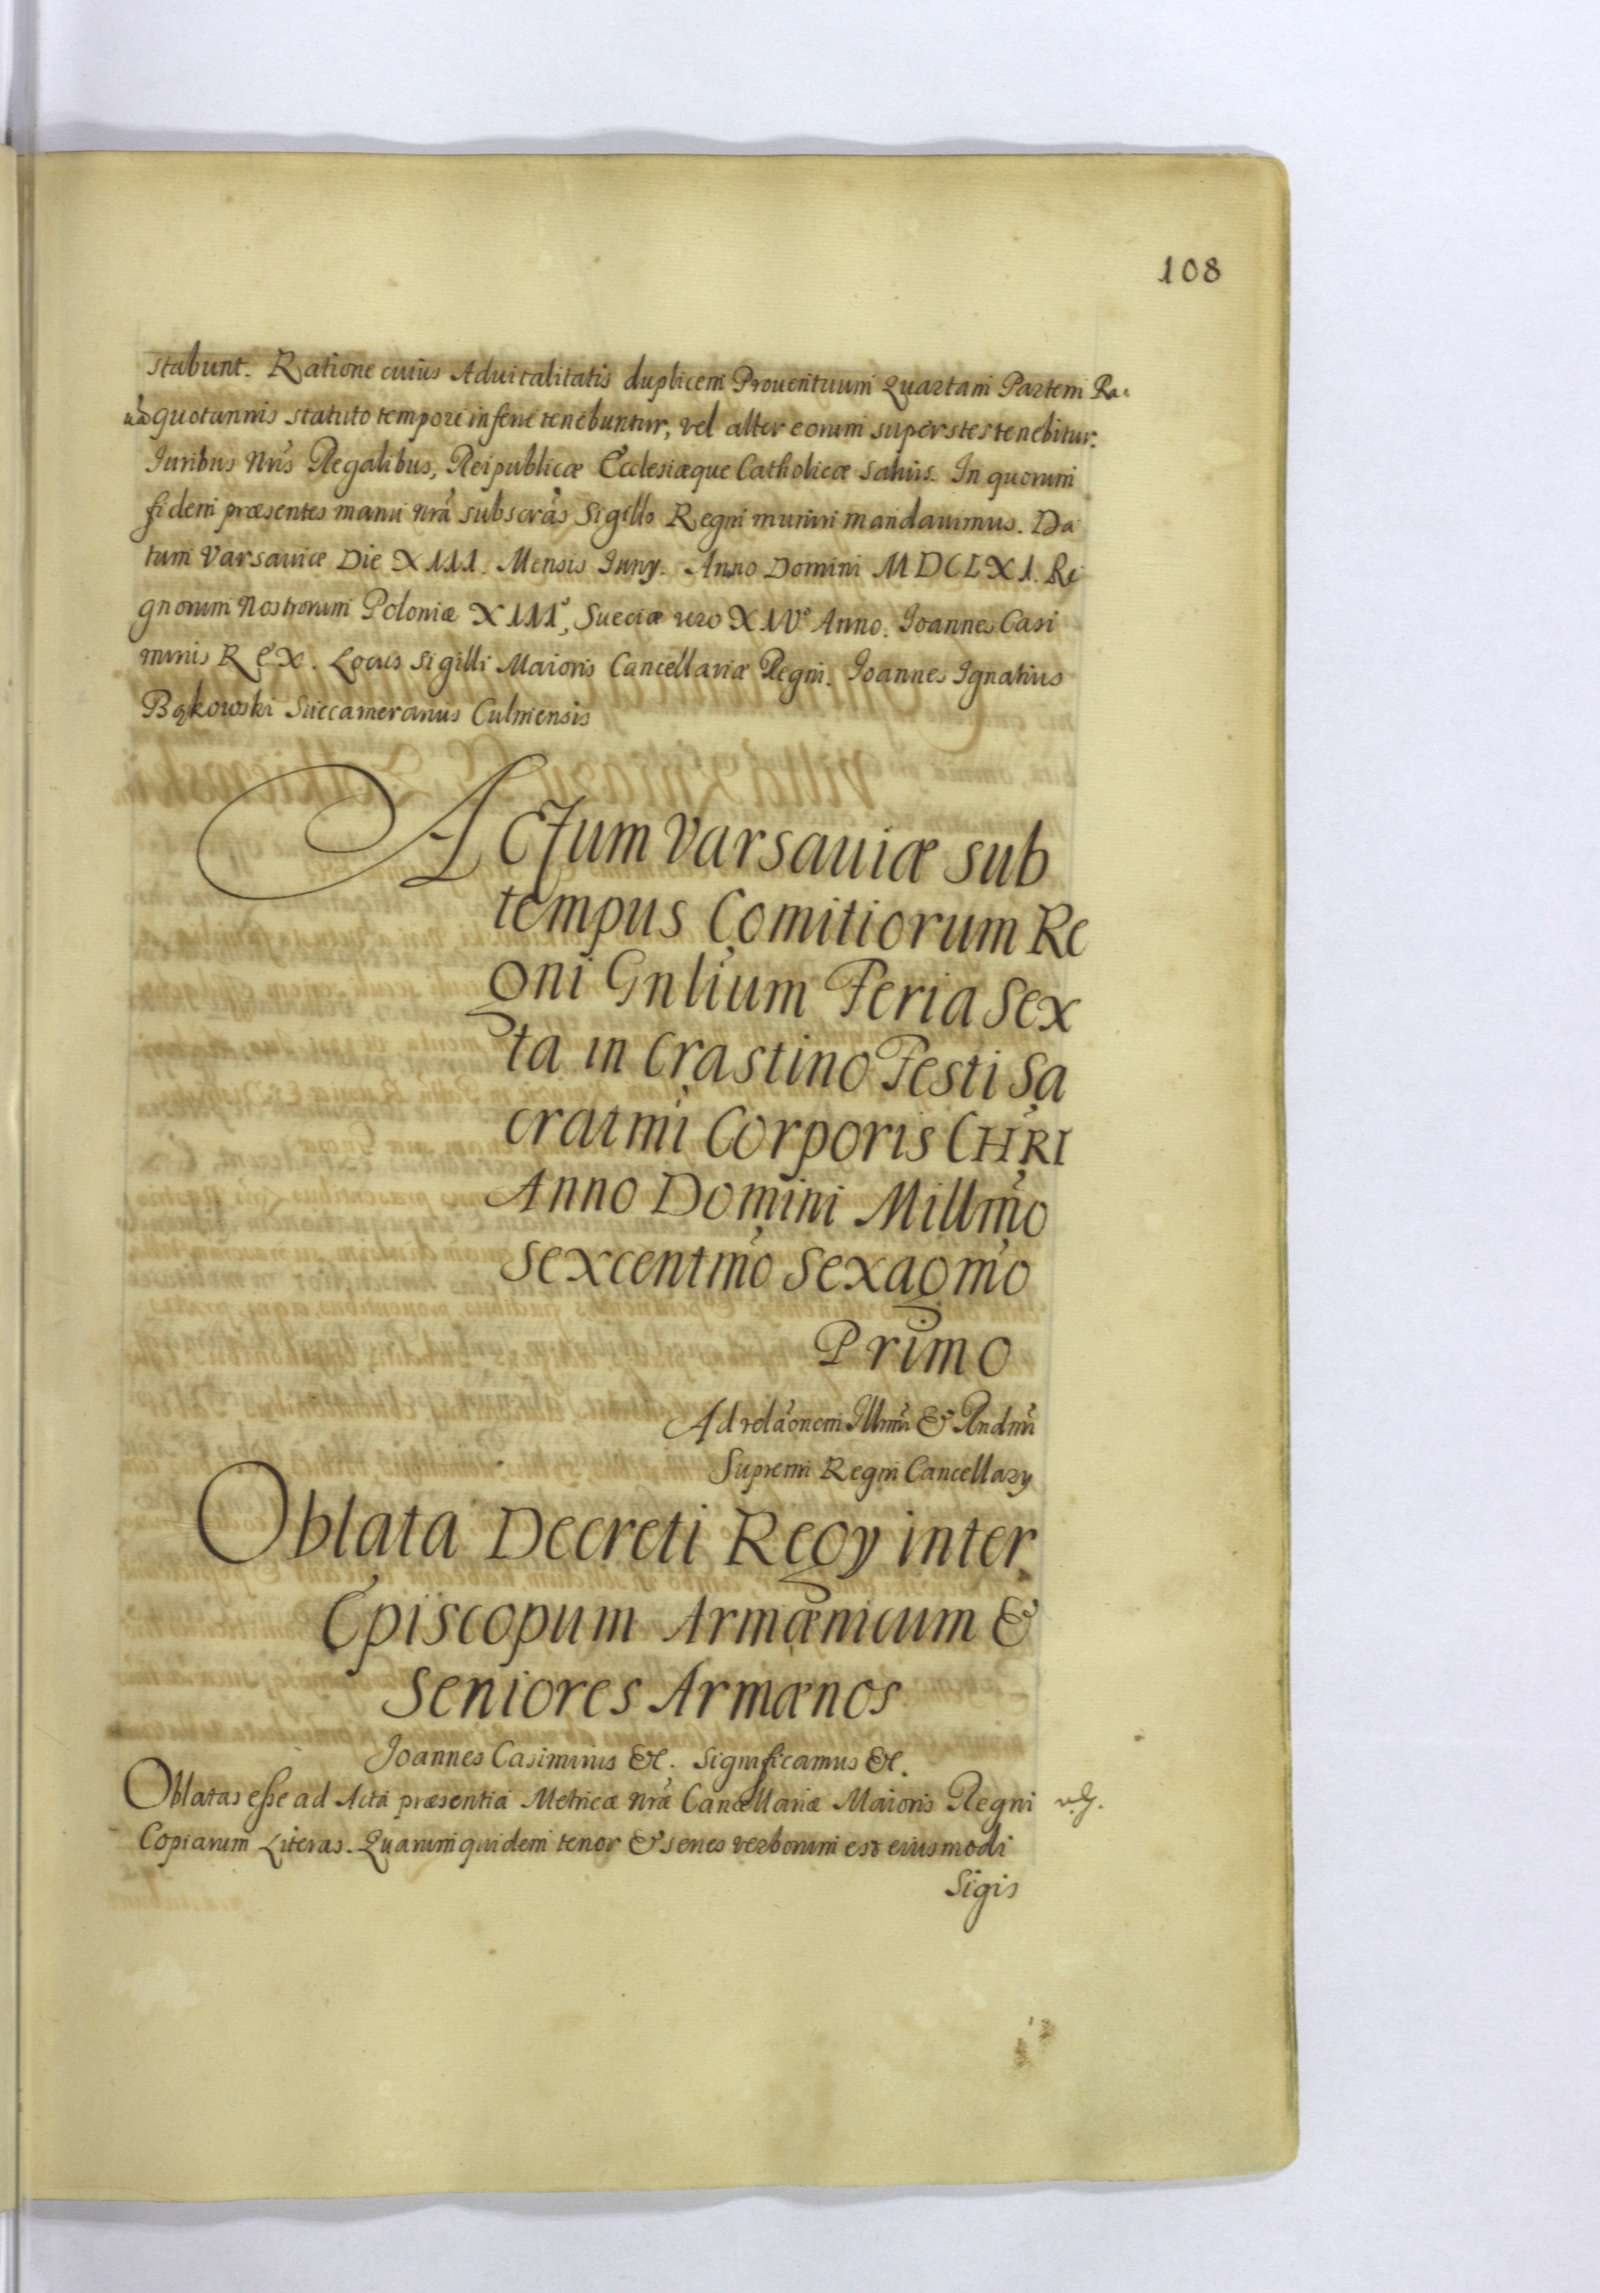 108
stabunt. Ratione cuius Aduitalitatis duplicem Prouentuum Quartam Partem Ra
uæ quotannis statuto tempore inferre tenebuntur, vel alter eorum superstes tenebitur.
Iuribus Nris Regalibus, Reipublicæ Ecclesiæque Catholicæ saluis. In quorum
fidem præsentes manu nra subscras Sigillo Regni muniri mandauimus. Da
tum Varsauiæ Die XIII. Mensis Iuny. Anno Domini MDCLXI. Re
gnorum Nostrorum Poloniæ XIII°, Sueciæ vero XIV° Anno. Ioannes Casi
mirus REX. Locus Sigilli Maioris Cancellariæ Regni. Ioannes Ignatius
Bąkowski Succamerarius Culmensis
Actum Varsauiæ sub
tempus Comitiorum Re
gni Gnlium Feria Sex
ta in Crastino Festi Sa
cratmi Corporis CHRI
Anno Domini Millmo
Sexcentmo Sexagmo
Primo
Ad relaonem Illmi & Rndmi
Supremi Regni Cancellary
Oblata Decreti Regy inter
Episcopum Armænicum &
Seniores Armænos
Ioannes Casimirus &c. Significamus &c.
Oblatas esse ad Acta præsentia Metricæ nræ Cancellariæ Maioris Regni
Copiarum Literas. Quarum quidem tenor & series verborum est eiusmodi
Sigis